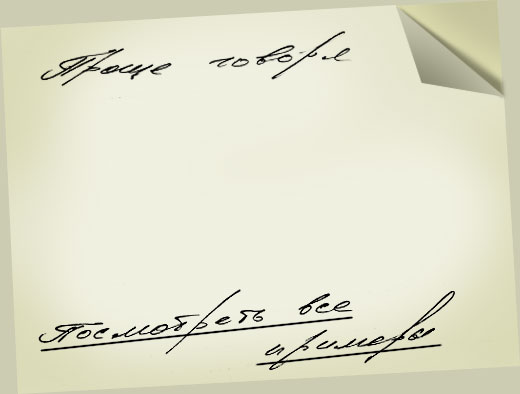 Проще говоря
Посмотреть все
примеры